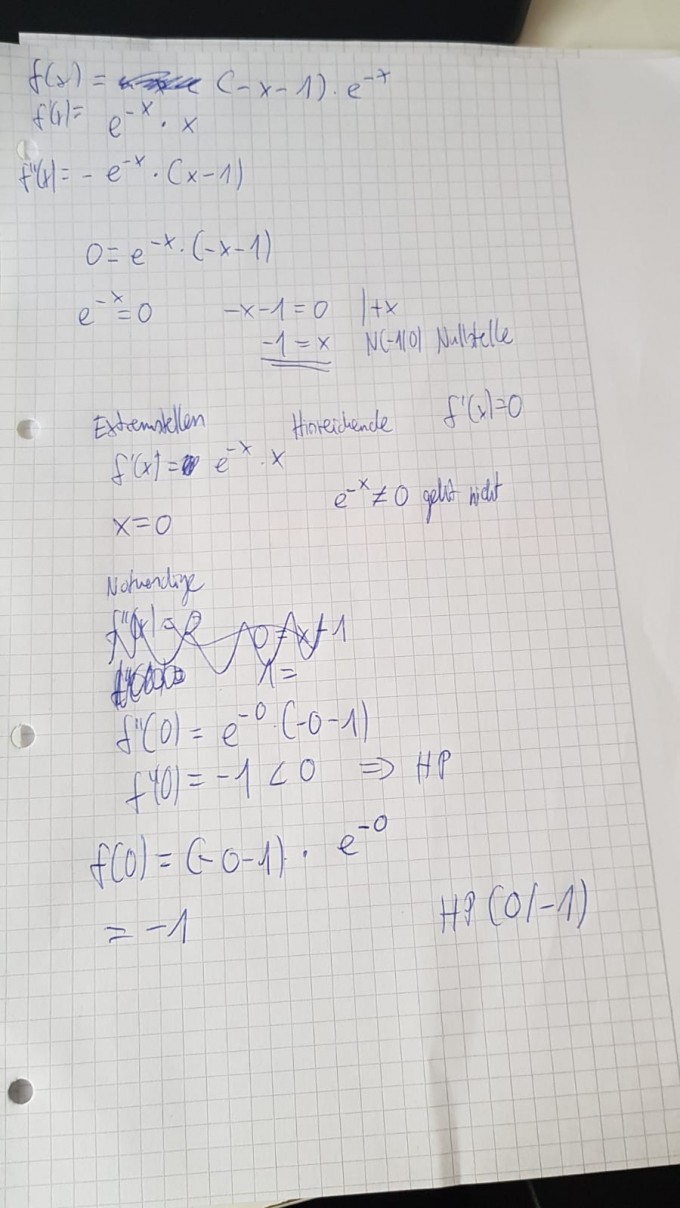 f(x) = (-x-1)·e^-x
f'(x) = e^-x · x
f''(x) = - e^-x · (x-1)
0 = e^-x · (-x-1)
e^-x = 0 -x-1 = 0 |+x
-1 = x N(-1|0) Nullstelle
Extremstellen Hinreichende f'(x)=0
f'(x) = e^-x · x
x=0 e^-x ≠ 0 geht nicht
Notwendige
f''(x) = 0 0 = x+1
1 =
f''(0) = e^-0 · (-0-1)
f''(0) = -1 < 0 ⇒ HP
f(0) = (-0-1) · e^-0
= -1 HP (0/-1)